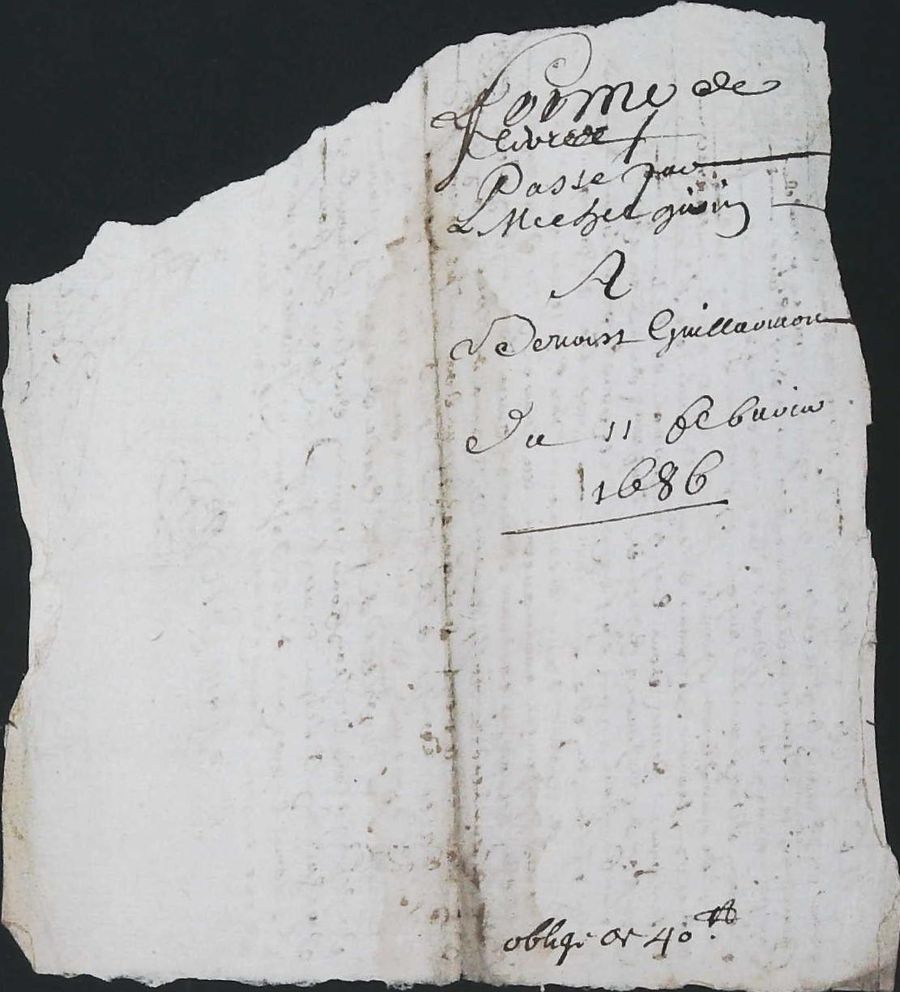 Forme de
livree
Passe par
Michel guin
A
Benoist Guillaumon
Du 11 febvrier
1686
oblige de 40 ₶